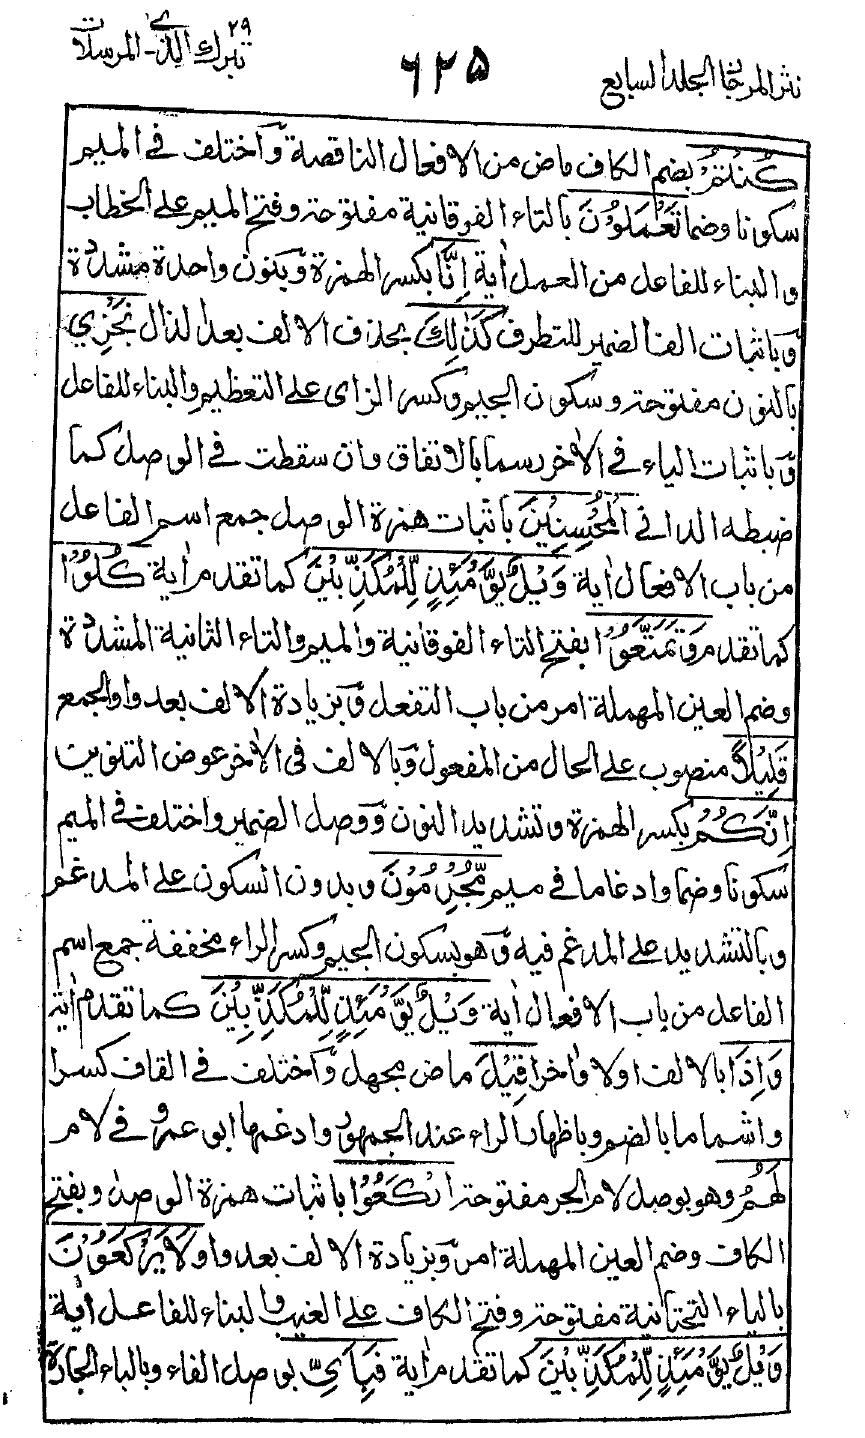 نثر المرجان المجلد السابع
٦٢٥
تبرك الذي ٢٩ - المرسلات
كُنْتُمْ بضم الكاف ماض من الافعال الناقصة وٓاختلف فى الميم
سكونا وضما تَعْمَلُوْنَ بالتاء الفوقانية مفتوحة وفتح الميم على الخطاب
والبناء للفاعل من العمل اٰية اِنَّا بكسر الهمزة وٓبنون واحدة مشددة
وٓباثبات الف الضمير للتطرف كَذٰلِكَ بحذف الالف بعد الذال نَجْزِي
بالنون مفتوحة وسكون الجيم وكسر الزاى على التعظيم والبناء للفاعل
وٓباثبات الياء فى الاٰخر رسما بالاتفاق وان سقطت فى الوصل كما
ضبطه الدانى الْمُحْسِنِيْنَ باثبات همزة الوصل جمع اسم الفاعل
من باب الافعال اٰية وَيْلٌ يَّوْمَئِذٍ لِّلْمُكَذِّبِيْنَ كما تقدم اٰية كُلُوْا
كما تقدم وَتَمَتَّعُوْا بفتح التاء الفوقانية والميم والتاء الثانية المشددة
وضم العين المهملة امر من باب التفعل وٓبزيادة الالف بعد واو الجمع
قَلِيْلًا منصوب على الحال من المفعول وٓبالالف فى الاٰخر عوض التنوين
اِنَّكُمْ بكسر الهمزة وتشديد النون وٓوصل الضمير واختلف فى الميم
سكونا وضما وادغاما فى ميم مُّجْرِمُوْنَ وبدون السكون على المدغم
وبالتشديد على المدغم فيه وٓهو بسكون الجيم وكسر الراء مخففة جمع اسم
الفاعل من باب الافعال اٰية وَيْلٌ يَّوْمَئِذٍ لِّلْمُكَذِّبِيْنَ كما تقدم اٰية
وَاِذَا بالالف اولا واٰخرا قِيْلَ ماض مجهل وٓاختلف فى القاف كسرا
واشماما بالضم وباظهار الراء عند الجمهور وادغمها ابو عمرو فى لام
لَهُمُ وهو بوصل لام الجر مفتوحة ارْكَعُوْا باثبات همزة الوصل وبفتح
الكاف وضم العين المهملة امر وٓبزيادة الالف بعد واو لَا يَرْكَعُوْنَ
بالياء التحتانية مفتوحة وفتح الكاف على الغيب والبناء للفاعل اٰية
وَيْلٌ يَّوْمَئِذٍ لِّلْمُكَذِّبِيْنَ كما تقدم اٰية فَبِاَيِّ بوصل الفاء وبالباء الجارة